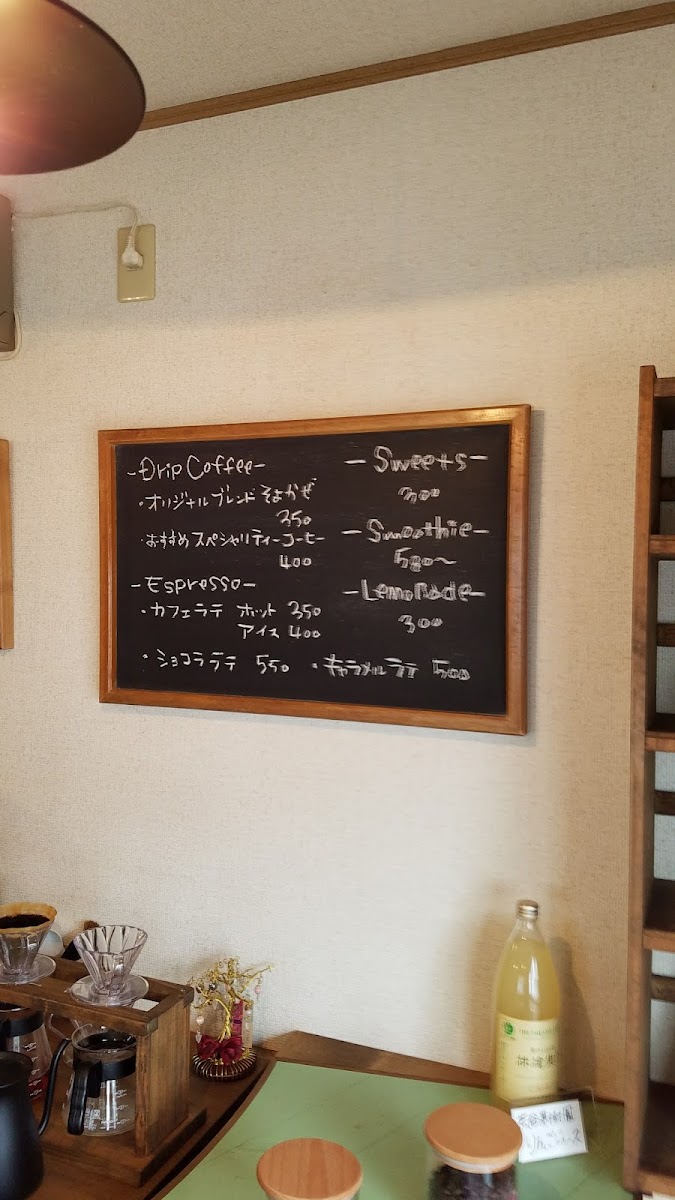 -Drip Coffee-
・オリジナルブレンド そよかぜ
350
・おすすめ スペシャリティーコーヒー
400
-Espresso-
・カフェラテ ホット 350
アイス 400
・ショコララテ 550
・キャラメルラテ 500
-Sweets-
300
-Smoothie-
580～
-Lemonade-
300